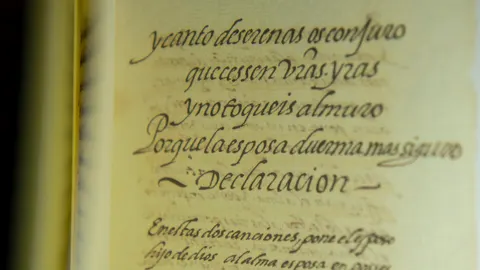 y canto de serenas os conjuro
que cessen vras yras
y no toqueis al muro
Porque la esposa duerma mas siguro
~ Declaracion ~
En estas dos canciones, pone el esposo
hijo de dios al alma esposa en